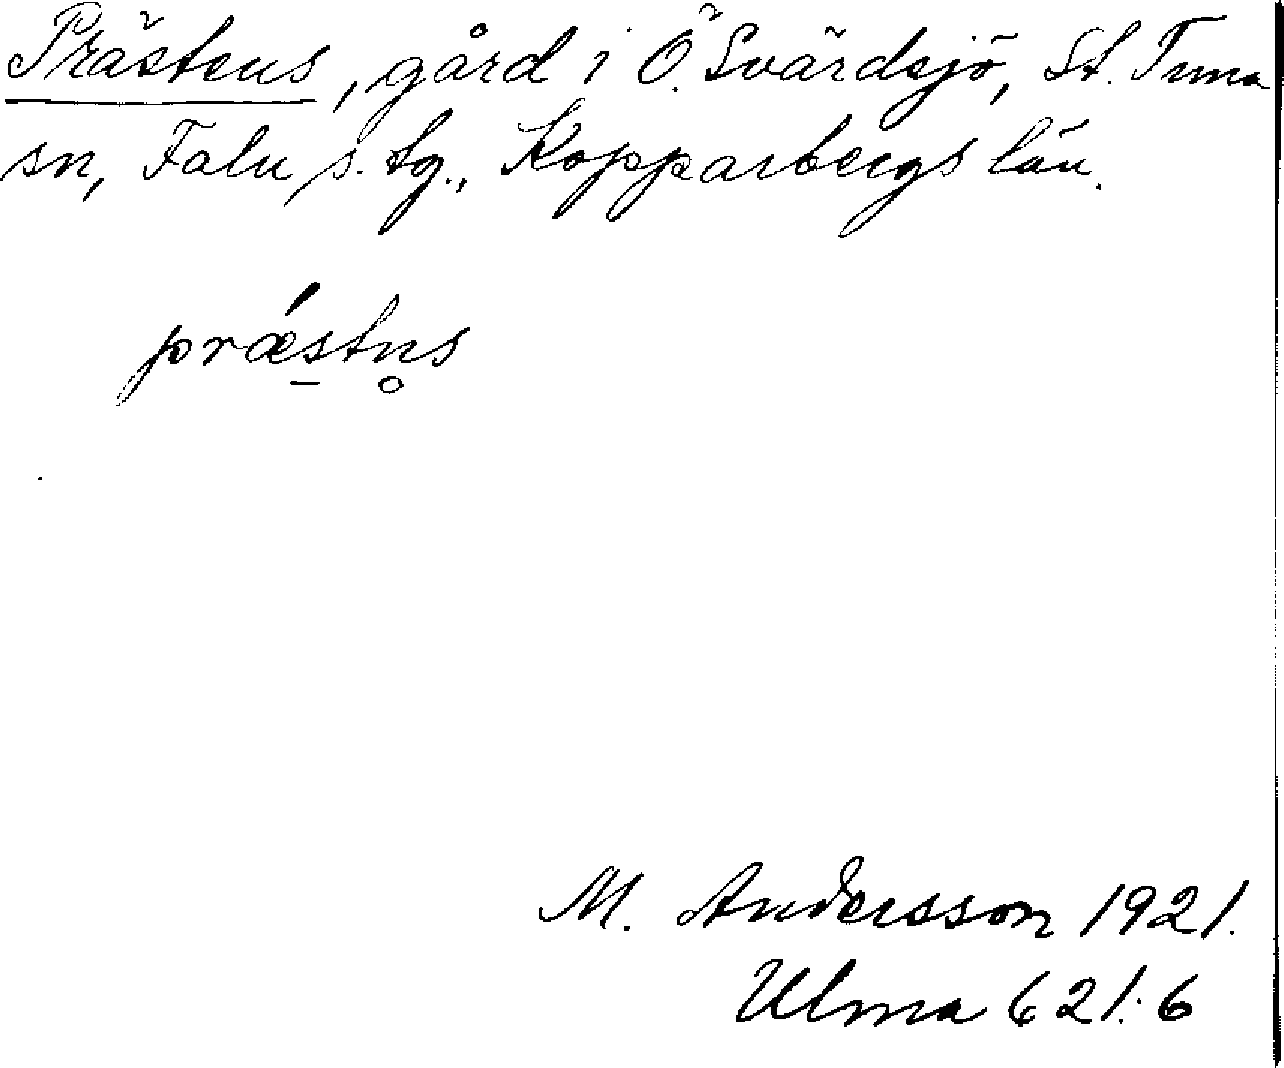 Prästens, gård i Ö. Svärdsjö, St. Tuna
sn, Falu s. tg., Kopparbergs län.
prǽs̱tn̥s
M. Andersson 1921.
Ulma 621:6